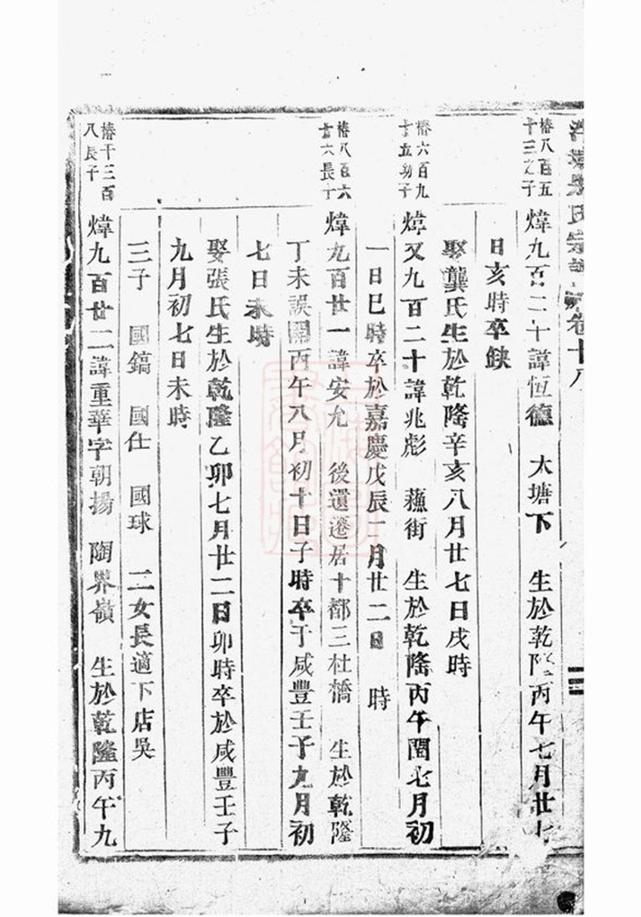 氏宗譜卷十八
椿八百五
十三之子
煒九百二十諱恆德 太塘下 生於乾隆丙午七月廿七
日亥時卒缺
娶龔氏生於乾隆辛亥八月廿七日戌時
椿六百九
十五幼子
煒又九百二十諱兆彪 蘓街 生於乾隆丙午閏七月初
一日巳時卒於嘉慶戊辰 月廿二日 時
椿八百六
十六長子
煒九百廿一諱安允 後遺遷居十都三杜橋 生於乾隆
丁未誤 丙午八月初十日子時卒于咸豐壬子九月初
七日未時
娶張氏生於乾隆乙卯七月廿二日卯時卒於咸豐壬子
九月初七日未時
三子 國鎬 國仕 國球 二女長適下店吳
椿千三百
八長子
煒九百廿二諱重華字朝揚 陶界嶺 生於乾隆丙午九